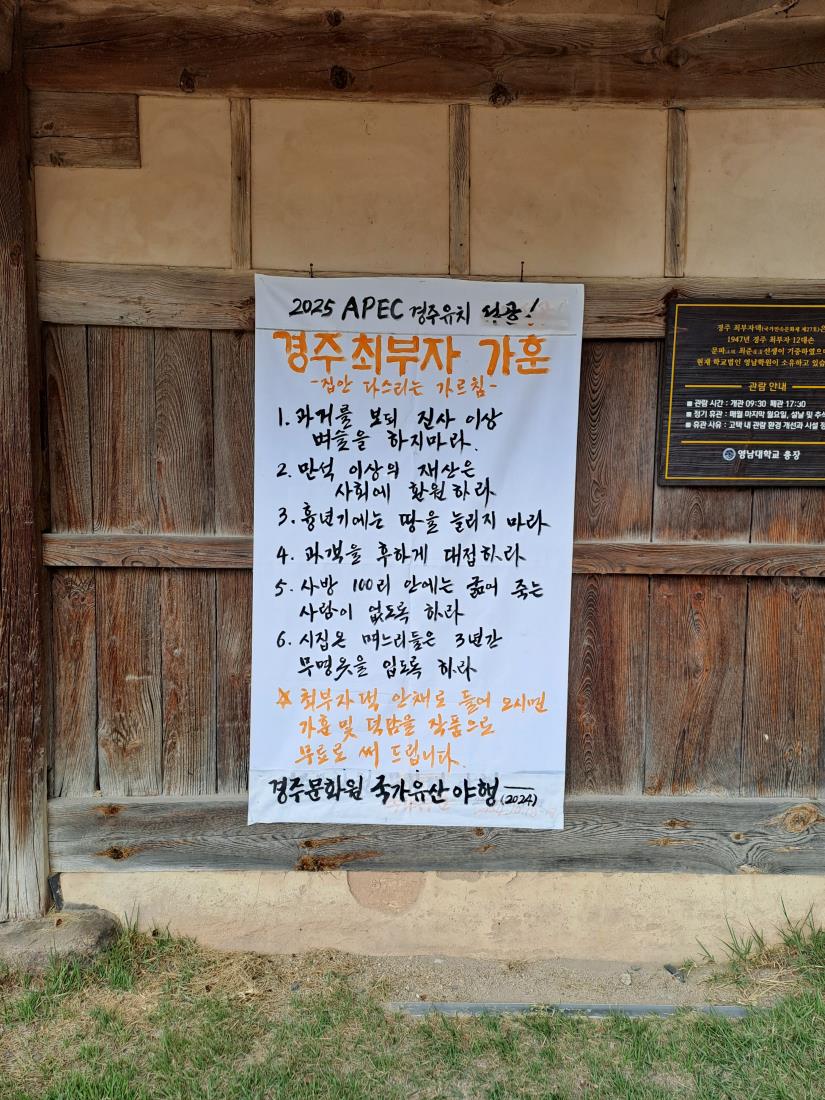 2025 APEC 경주유치
경주최부자 가훈
-집안 다스리는 가르침-
1. 과거를 보되 진사 이상
벼슬을 하지마라.
2. 만석 이상의 재산은
사회에 환원하라
3. 흉년기에는 땅을 늘리지 마라
4. 과객을 후하게 대접하라
5. 사방 100리 안에는 굶어 죽는
사람이 없도록 하라
6. 시집온 며느리들은 3년간
무명옷을 입도록 하라
☆ 최부자댁 안채로 들어 오시면
가훈 및 덕담을 작품으로
무료로 써 드립니다.
경주문화원 국가유산 야행(2024)
경주 최부자댁(국가민속문화재 제27호)은
1947년 경주 최부자 12대손
문파 최준 선생이 기증하였으며
현재 학교법인 영남학원이 소유하고 있습
관람 안내
■ 관람 시간 : 개관 09:30 폐관 17:30
■ 정기 휴관 : 매월 마지막 월요일, 설날 및 추석
■ 휴관 사유 : 고택 내 관람 환경 개선과 시설 점
영남대학교 총장